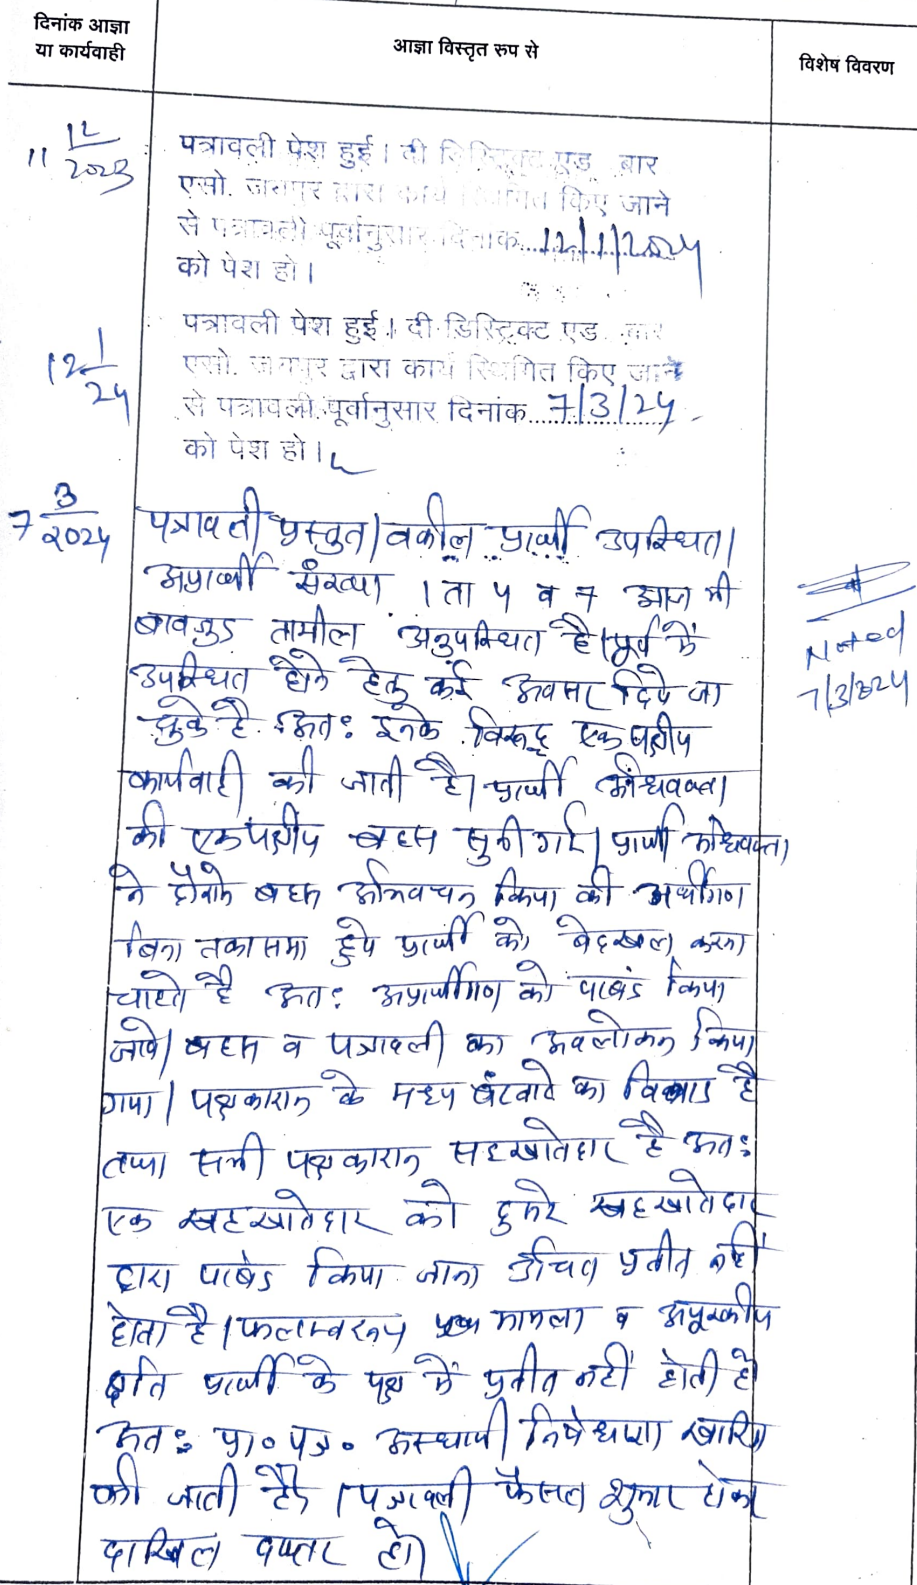 दिनांक आज्ञा
या कार्यवाही
आज्ञा विस्तृत रूप से
विशेष विवरण
11 12/2023
पत्रावली पेश हुई। दी डिस्ट्रिक्ट एड. बार
एसो. जयपुर द्वारा कार्य स्थगित किए जाने
से पत्रावली पूर्वानुसार दिनांक...12/1/2024
को पेश हो।
12 1/24
पत्रावली पेश हुई। दी डिस्ट्रिक्ट एड. बार
एसो. जयपुर द्वारा कार्य स्थगित किए जाने
से पत्रावली पूर्वानुसार दिनांक...7/3/24
को पेश हो।
7 3/2024
पत्रावली प्रस्तुत। वकील प्रार्थी उपस्थित।
अप्रार्थी संख्या 1 ता 5 व 7 आज भी
बावजुद तामील अनुपस्थित है। पूर्व में
उपस्थित होने हेतु कई अवसर दिये जा
चुके है अतः इनके विरूद्ध एकपक्षीय
कार्यवाही की जाती है। प्रार्थी अधिवक्ता
की एकपक्षीय बहस सुनी गई। प्रार्थी अधिवक्ता
ने दौराने बहस अभिवचन किया की अप्रार्थीगण
बिना तकासमा हुये प्रार्थी को बेदखल करना
चाहते है अतः अप्रार्थीगण को पाबंद किया
जावे। बहस व पत्रावली का अवलोकन किया
गया। पक्षकारान के मध्य बंटवारे का विवाद है
तथा सभी पक्षकारान सहखातेदार है अतः
एक सहखातेदार को दुसरे सहखातेदार
द्वारा पाबंद किया जाना उचित प्रतीत नहीं
होता है। फलस्वरूप मामला व अपूरणीय
क्षति प्रार्थी के पक्ष में प्रतीत नहीं होती है
अतः प्रा० पत्र० अस्थायी निषेधाज्ञा खारिज
की जाती है। पत्रावली फैसल शुमार होकर
दाखिल दफ्तर हो।
Noted
7/3/2024